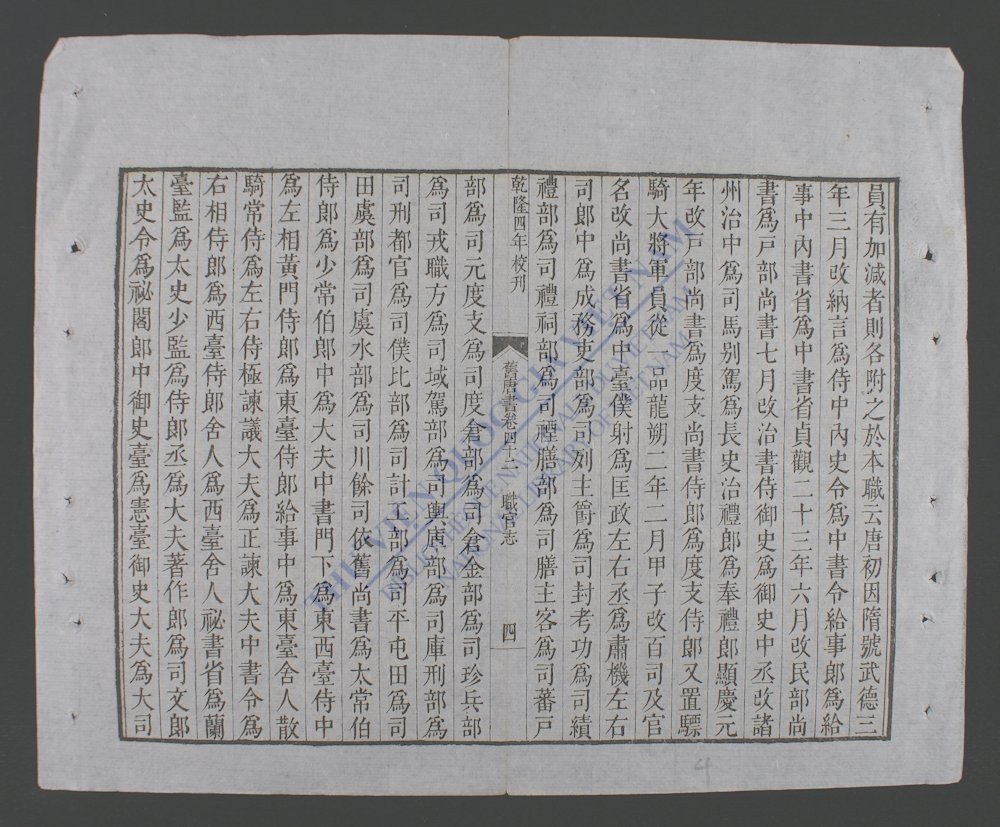 員有加減者則各附之於本職云唐初因隋號武德三
年三月改納言爲侍中內史令爲中書令給事郎爲給
事中內書省爲中書省貞觀二十三年六月改民部尚
書爲戸部尚書七月改治書侍御史爲御史中丞改諸
州治中爲司馬别駕爲長史治禮郎爲奉禮郎顯慶元
年改戸部尚書爲度支尚書侍郎爲度支侍郎又置驃
騎大將軍員從一品龍朔二年二月甲子改百司及官
名改尚書省爲中臺僕射爲匡政左右丞爲肅機左右
司郎中爲成務吏部爲司列主爵爲司封考功爲司績
禮部爲司禮祠部爲司禋膳部爲司膳主客爲司蕃戸
乾隆四年校刊
舊唐書卷四十二 職官志 四
部爲司元度支爲司度倉部爲司倉金部爲司珍兵部
爲司戎職方爲司域駕部爲司輿庫部爲司庫刑部爲
司刑都官爲司僕比部爲司計工部爲司平屯田爲司
田虞部爲司虞水部爲司川餘司依舊尚書爲太常伯
侍郎爲少常伯郎中爲大夫中書門下爲東西臺侍中
爲左相黃門侍郎爲東臺侍郎給事中爲東臺舍人散
騎常侍爲左右侍極諫議大夫爲正諫大夫中書令爲
右相侍郎爲西臺侍郎舍人爲西臺舍人祕書省爲蘭
臺監爲太史少監爲侍郎丞爲大夫著作郎爲司文郎
太史令爲祕閣郎中御史臺爲憲臺御史大夫爲大司
4
THƯ VIỆN QUỐC GIA VIỆT NAM